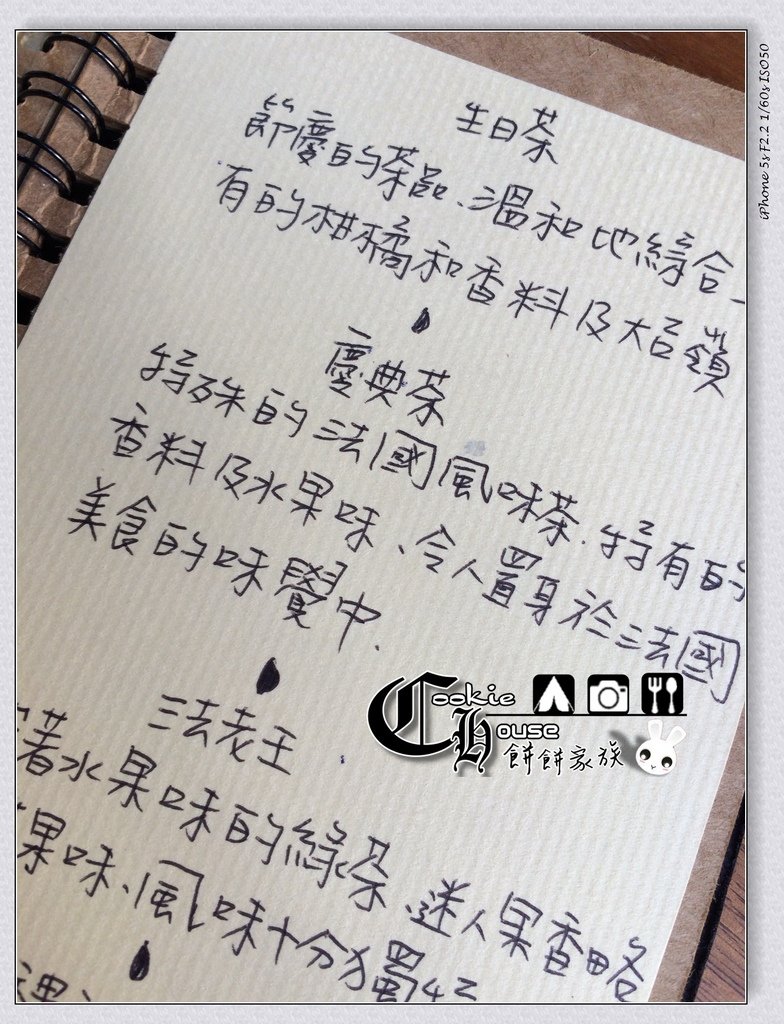 生日茶
節慶的茶品、溫和地綜合
有的柑橘和香料及大吉嶺
慶典茶
特殊的法國風味茶、特有的
香料及水果味、令人置身於法國
美食的味覺中.
法老王
著水果味的綠茶、迷人果香略
果味、風味十分獨
Cookie
House
餅餅家族
iPhone 5s F2.2 1/60s ISO50